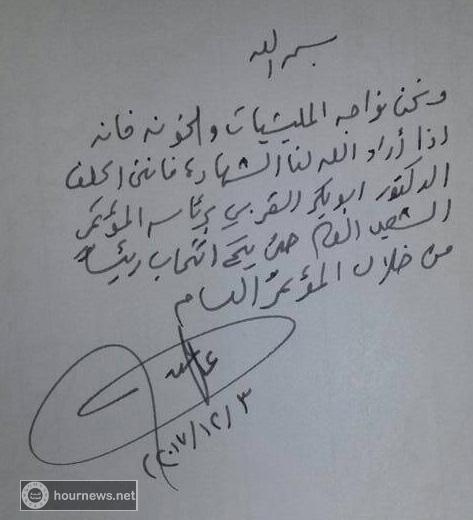 بسم الله
ونحن نواجه المليشيات والخونه فانه
اذا أراد الله لنا الشهاده فانني اكلف
الدكتور ابوبكر القربي برئاسه المؤتمر
الشعبي العام حتى يتم انتخاب رئيساً
من خلال المؤتمر العام
٢٠١٧/١٢/٣
hournews.net